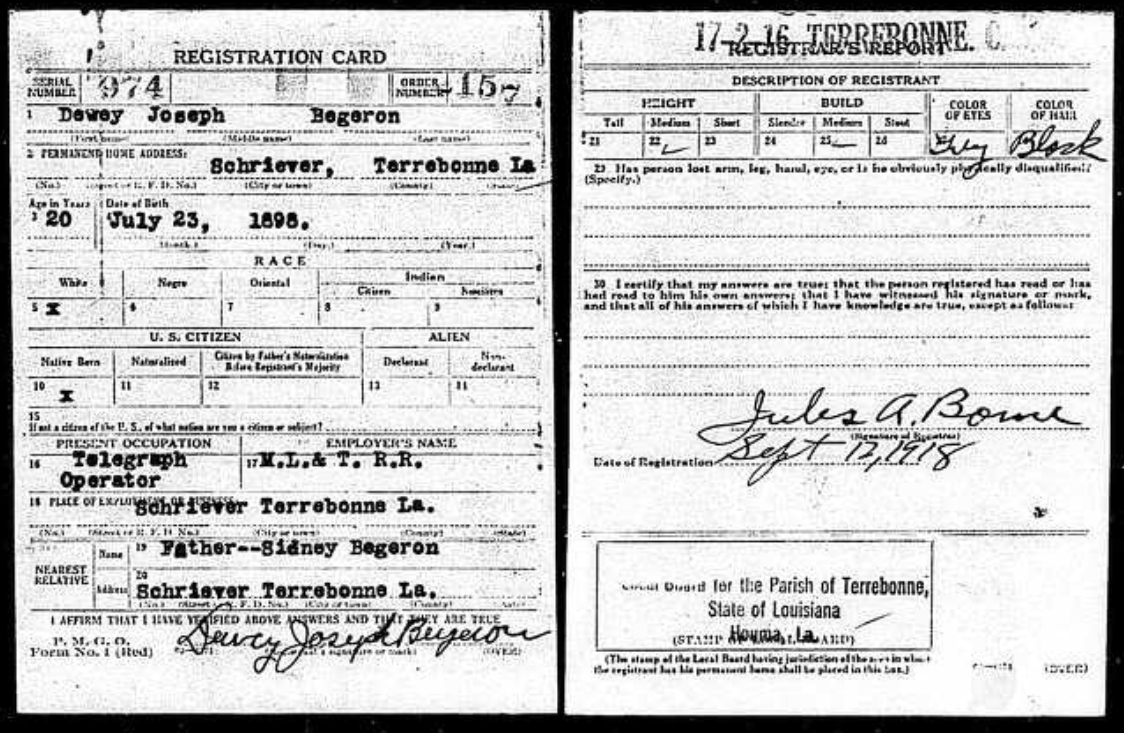 REGISTRATION CARD
SERIAL NUMBER 974 ORDER NUMBER
1 Dewey Joseph Begeron
(First name) (Middle name) (Last name)
2 PERMANENT HOME ADDRESS:
Schriever, Terrebonne La
(No.) (Street or R. F. D. No.) (City or town) (County) (State)
Age in Years Date of Birth
3 20 July 23, 1898.
(Month.) (Day.) (Year.)
RACE
White Negro Oriental Indian
Citizen Noncitizen
5 X 6 7 8 9
U. S. CITIZEN ALIEN
Native Born Naturalized Citizen by Father's Naturalization Before Registrant's Majority Declarant Non-declarant
10 X 11 12 13 14
15
If not a citizen of the U. S., of what nation are you a citizen or subject?
PRESENT OCCUPATION EMPLOYER'S NAME
16 Telegraph 17 M.L.& T. R.R.
Operator
18 PLACE OF EMPLOYMENT OR BUSINESS:
Schriever Terrebonne La.
(No.) (Street or R. F. D. No.) (City or town) (County) (State)
NEAREST RELATIVE
Name 19 Father--Sidney Begeron
Address 20 Schriever Terrebonne La.
(No.) (Street or R. F. D. No.) (City or town) (County) (State)
I AFFIRM THAT I HAVE VERIFIED ABOVE ANSWERS AND THAT THEY ARE TRUE
P. M. G. O.
Form No. 1 (Red) Dewey Joseph Begeron
(Registrant's signature or mark) (OVER)
17-2-16 TERREBONNE. C.
REGISTRAR'S REPORT
DESCRIPTION OF REGISTRANT
HEIGHT BUILD COLOR OF EYES COLOR OF HAIR
Tall Medium Short Slender Medium Stout
21 22 23 24 25 26 Grey Black
29 Has person lost arm, leg, hand, eye, or is he obviously physically disqualified?
(Specify.)
30 I certify that my answers are true; that the person registered has read or has
had read to him his own answers; that I have witnessed his signature or mark,
and that all of his answers of which I have knowledge are true, except as follows:
Jules A.
(Signature of Registrar)
Date of Registration Sept 12, 1918
Local Board for the Parish of Terrebonne,
State of Louisiana
Houma, La.
(STAMP OF LOCAL BOARD)
(The stamp of the Local Board having jurisdiction of the area in which
the registrant has his permanent home shall be placed in this box.)
(OVER)